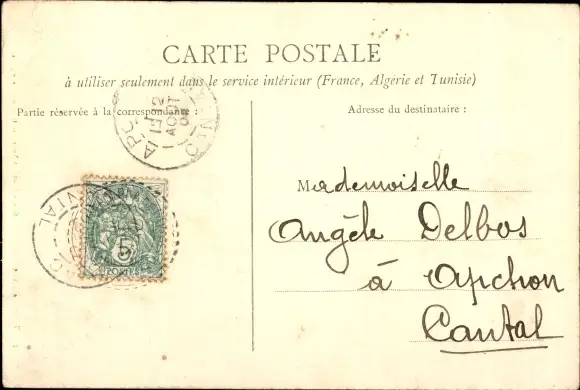 CARTE POSTALE
à utiliser seulement dans le service intérieur (France, Algérie et Tunisie)
Partie réservée à la correspondance :
Adresse du destinataire :
AOUT
Mademoiselle
Angèle Delbos
à Apchon
Cantal
5
POSTES